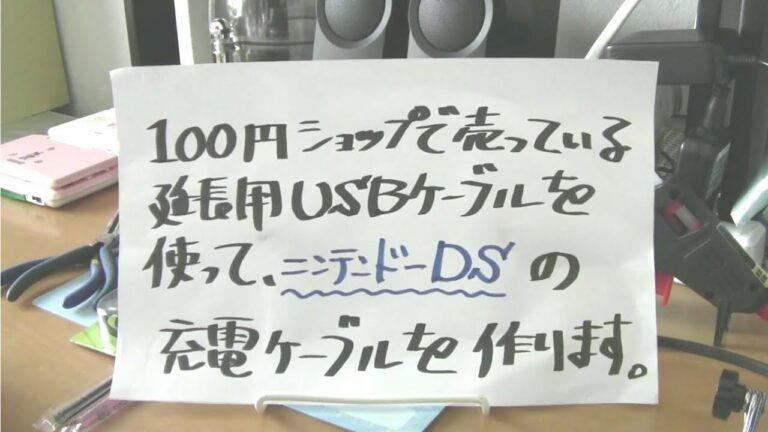 100円ショップで売っている
延長用USBケーブルを
使って、ニンテンドーDSの
充電ケーブルを作ります。